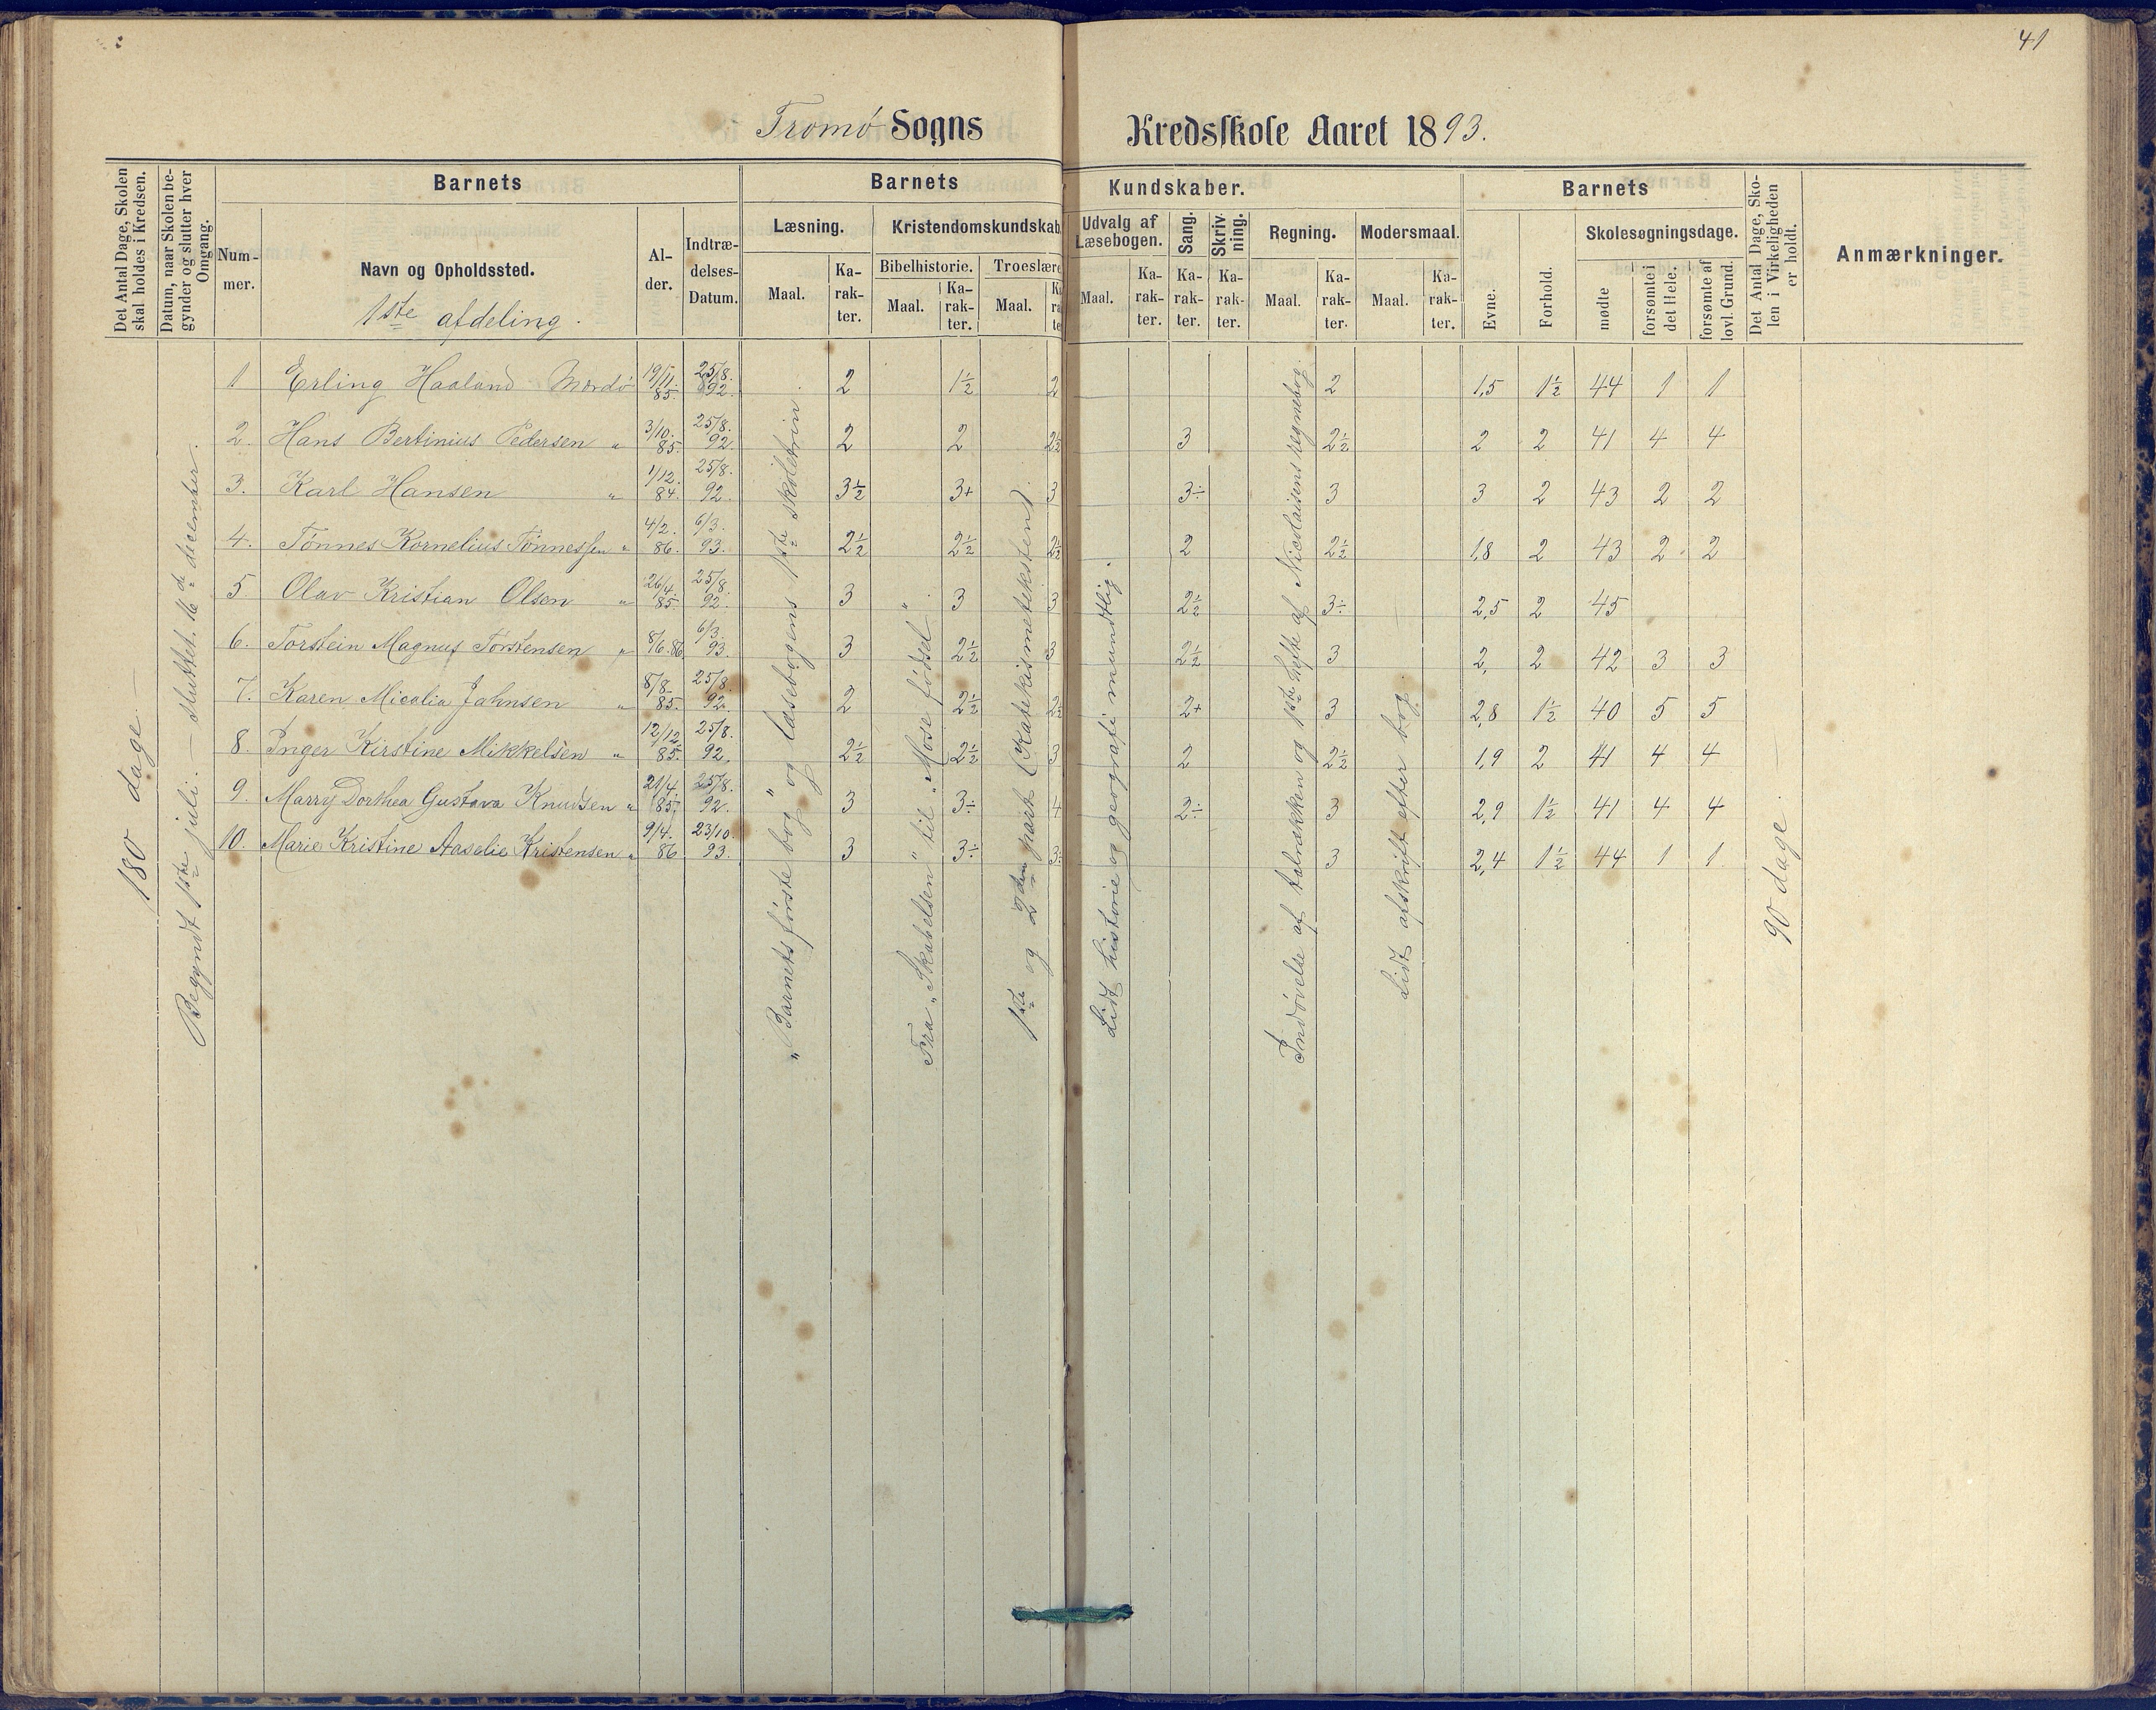 41
Tromø Sogns Kredsskole Aaret 1893.
Det Antal Dage, Skolen skal holdes i Kredsen.
Datum, naar Skolen begynder og slutter hver Omgang.
Barnets
Nummer.
Navn og Opholdssted.
1ste afdeling.
Alder.
Indtrædelses-Datum.
Barnets Kundskaber.
Læsning.
Maal.
Karakter.
Kristendomskundskab.
Bibelhistorie.
Maal.
Karakter.
Troeslære
Maal.
Udvalg af Læsebogen.
Maal.
Karakter.
Sang.
Karakter.
Skrivning.
Karakter.
Regning.
Maal.
Karakter.
Modersmaal.
Maal.
Karakter.
Barnets
Evne.
Forhold.
Skolesøgningsdage.
mødte
forsømte i det Hele.
forsømte af lovl. Grund.
Det Antal Dage, Skolen i Virkeligheden er holdt.
Anmærkninger.
180 dage.—
Begyndt 1ste juli. — sluttet 16de december.
1 Erling Haaland Mærdø 19/11. 85. 25/8. 92. 2 1½ 2 2 1,5 1½ 44 1 1
2. Hans Bertinius Pedersen " 3/10. 85. 25/8. 92. 2 2 2½ 3 2½ 2 2 41 4 4
3. Karl Hansen " 1/12. 84. 25/8. 92. 3½ 3+ 3 3÷ 3 3 2 43 2 2
4. Tønnes Kornelius Tønnessen " 4/2. 86. 6/3. 93. 2½ 2½ 2½ 2 2½ 1,8 2 43 2 2
5 Olav Kristian Olsen " 26/4. 85. 25/8. 92. 3 3 3 2½ 3÷ 2,5 2 45
6. Torstein Magnus Torstensen " 8/6.86 6/3. 93. 3 2½ 3 2½ 3 2, 2 42 3 3
7. Karen Micalia Jahnsen " 8/8. 85. 25/8. 92. 2 2½ 2½ 2+ 3 2,8 1½ 40 5 5
8. Inger Kirstine Mikkelsen " 12/12. 85. 25/8. 92. 2½ 2½ 3 2 2½ 1,9 2 41 4 4
9. Marry Dorthea Gustava Knudsen " 21/4. 85. 25/8. 92. 3 3÷ 4 2÷ 3 2,9 1½ 41 4 4
10. Marie Kristine Aaselie Kristensen " 9/4. 86 23/10. 93. 3 3÷ 3÷ 3 2,4 1½ 44 1 1
„Barnets første bog" og læsebogens 1ste skoletrin
Fra „Skabelsen" til „Mose fødsel".
1ste og 2den part (Katekismeteksten).
Lidt historie og geografi mundtlig.
Indøvelse af talrækken og 1ste hefte af Nicolaisens regnebog.
Lidt afskrift efter bog.
90 dage.